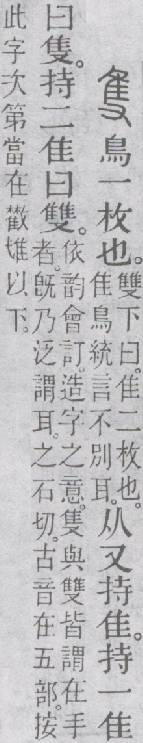 隻鳥一枚也。
雙下曰。隹二枚也。
隹鳥統言不別耳。
从又持隹。持一隹
曰隻。持二隹曰雙。
依韵會訂。造字之意。隻與雙皆謂在手
者。旣乃泛謂耳。之石切。古音在五部。按
此字次第當在雄以下。